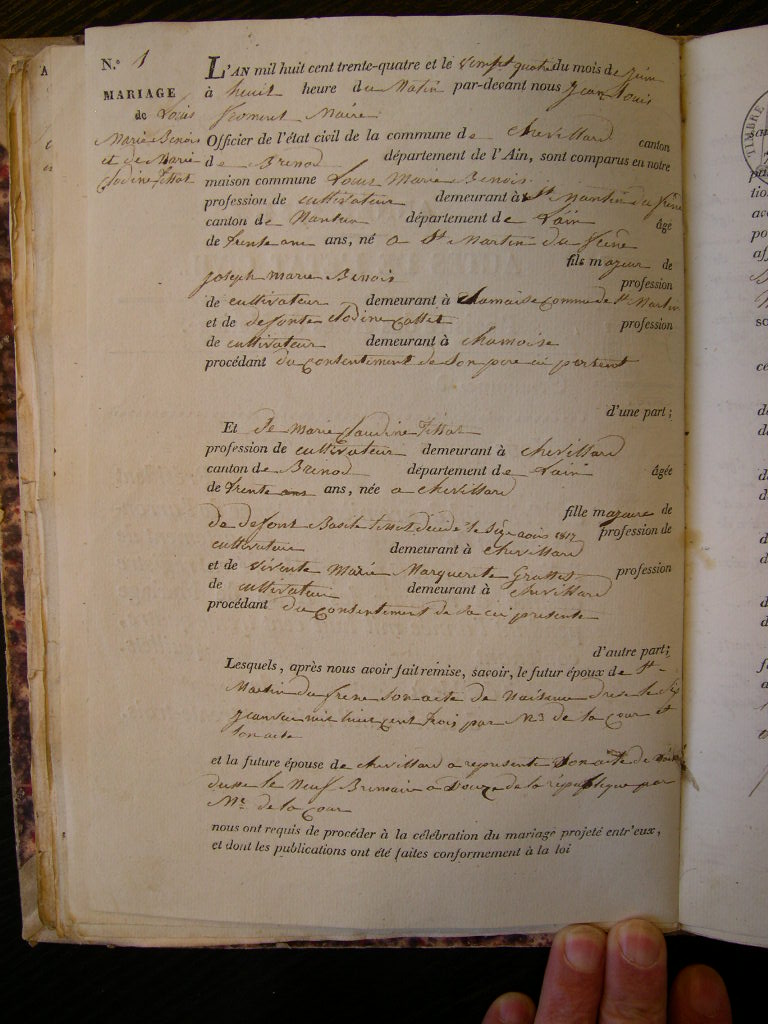 N.° 1
MARIAGE
de Louis
Marie Benois
et de Marie
Clodine Tissot
L'AN mil huit cent trente-quatre et le vempt quatre du mois de juin
à heuit heure du Matin par-devant nous Jean Louis
Maire
Officier de l'état civil de la commune de Chevillard canton
de Brenod département de l'Ain, sont comparus en notre
maison commune Louis Marie Benois
profession de cultivateur demeurant à St Martin du frêne
canton de Nantua département de Lain âgé
de trente ans ans, né a St Martin du freine
fils majeur de
joseph marie Benois profession
de cultivateur demeurant à Chamoise Comune de St Martin
et de defonte Clodine Collet profession
de cultivateur demeurant à chamoise
procédant du consentement de son pere ici present
d'une part;
Et de Marie Claudine Tissot
profession de cultivateur demeurant à chevillard
canton de Brenod département de Lain âgée
de trente ans ans, née a chevillard
fille majeure de
de defont Basile tissot décédé le six aoùs 1817 profession de
cultivateur demeurant à chevillard
et de vivente Marie Marguerite Grattes profession
de cultivateur demeurant à chevillard
procédant du consentement de sa ici presente
d'autre part;
Lesquels, après nous avoir fait remise, savoir, le futur époux de St
Martin du frene son acte de Naisance dresse le six
mil huit cent trois par Mr de la Cour et
son acte
et la future épouse de chevillard a representé son acte de
dresse le Neuf Brumaire a Douze de la république par
Mr de la Cour
nous ont requis de procéder à la célébration du mariage projeté entr'eux,
et dont les publications ont été faites conformement à la loi
TIMBRE